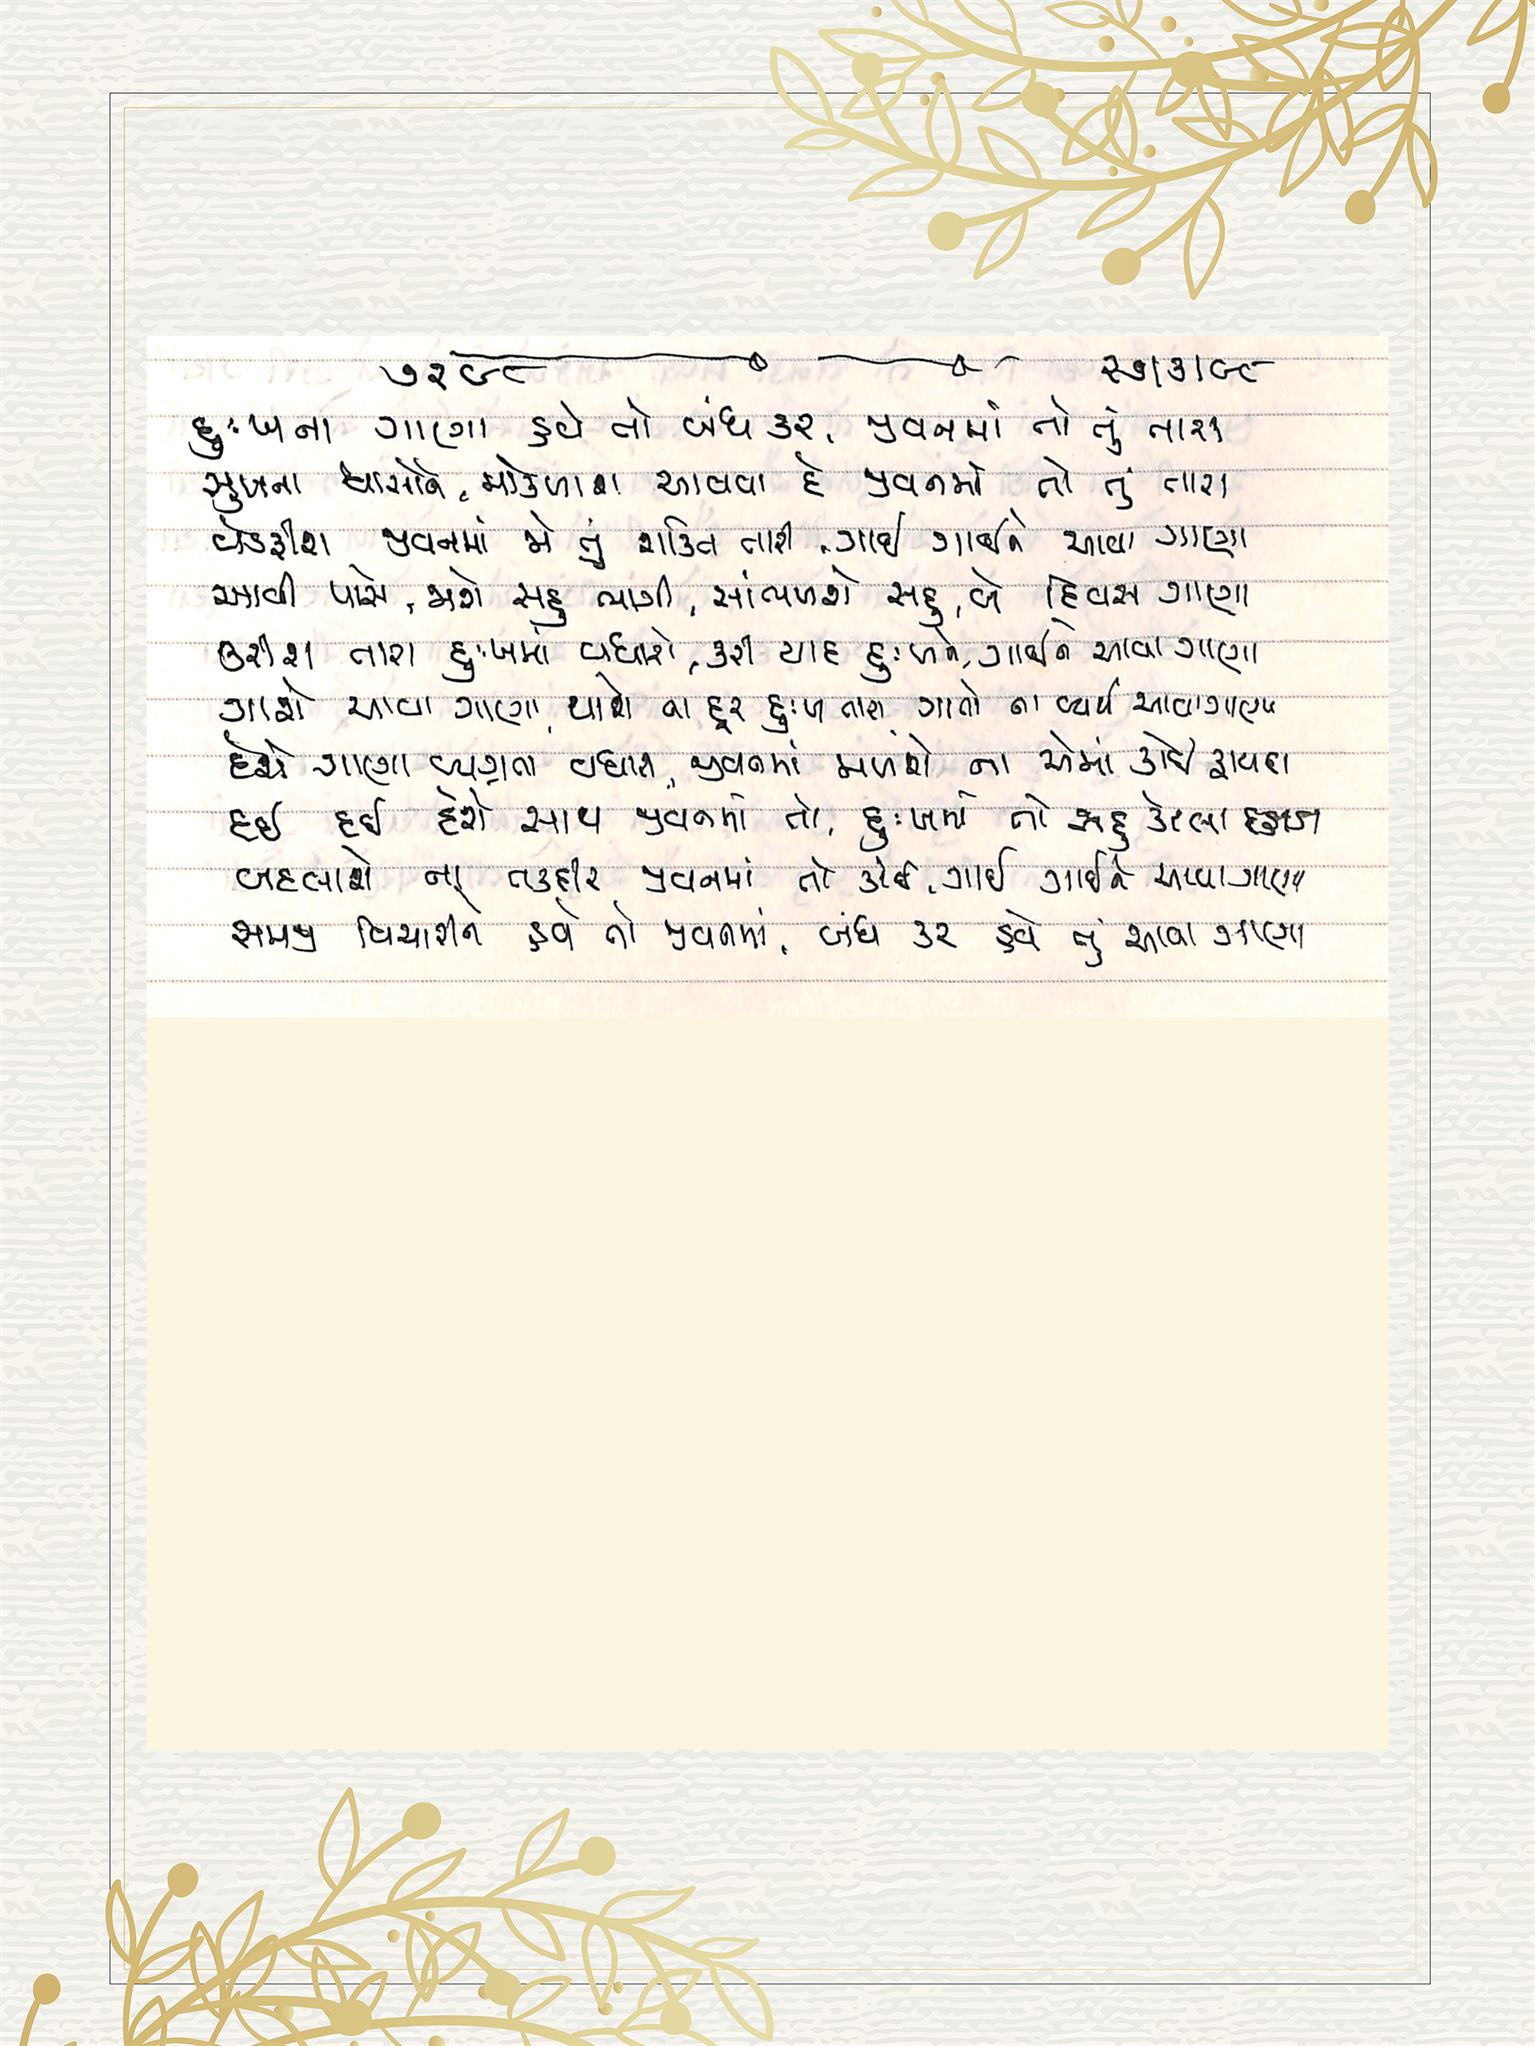 ૭૨૯૮ ૨૭/૩/૯૮
દુઃખના ગાણા હવે તો બંધ કર, જીવનમાં તો તું તારા
સુખના શ્વાસોને, મોકળાશ આવવા દે જીવનમાં તો તું તારા
વેડફીશ જીવનમાં જો તું શક્તિ તારી, ગાઈ ગાઈને આવા ગાણા
આવી પાસે, જાશે સહુ ત્યાગી, સાંભળશે સહુ, બે દિવસ ગાણા
કરીશ તારા દુઃખમાં વધારો, કરી યાદ દુઃખને, ગાઈને આવા ગાણા
ગાશે આવા ગાણા, થાશે ના દૂર દુઃખ તારા, ગાતો ના વ્યર્થ આવા ગાણા
દેશે ગાણા વ્યગ્રતા વધારી, જીવનમાં મળશે ના એમાં કોઈ ફાયદા
દઈ દઈ દેશે સાથ જીવનમાં તો, દુઃખમાં તો સહુ કેટલા
બદલાશે ના તકદીર જીવનમાં તો કોઈ, ગાઈ ગાઈને આવા ગાણા
સમજી વિચારીને હવે તો જીવનમાં, બંધ કર હવે તું આવા ગાણા